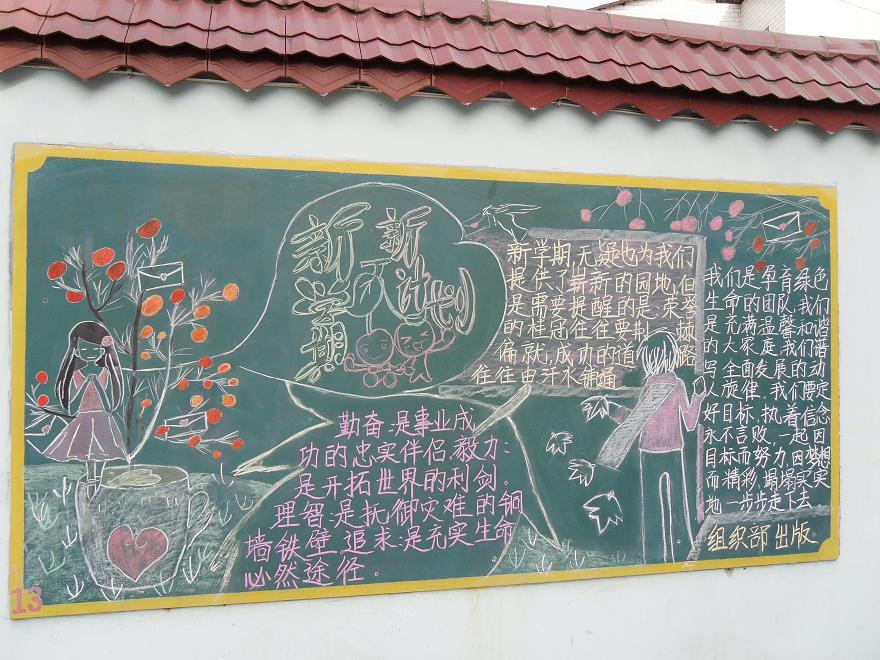 新学期
新计划
新学期,无疑也为我们
提供了崭新的园地,但
是需要提醒的是:荣誉
的桂冠往往要荆棘
编就,成功的道路
往往由汗水铺通
我们是孕育绿色
生命的团队,我们
是充满温馨和谐
的大家庭,我们谱
写全面发展的动
人旋律,我们要定
好目标,执着信念
永不言败,一起因
目标而努力,因梦想
而精彩,踏踏实实
地一步步走下去
组织部出版
勤奋:是事业成
功的忠实伴侣.毅力:
是开拓世界的利剑。
理智:是抵御灾难的铜
墙铁壁.追求:是充实生命
必然途径。
13